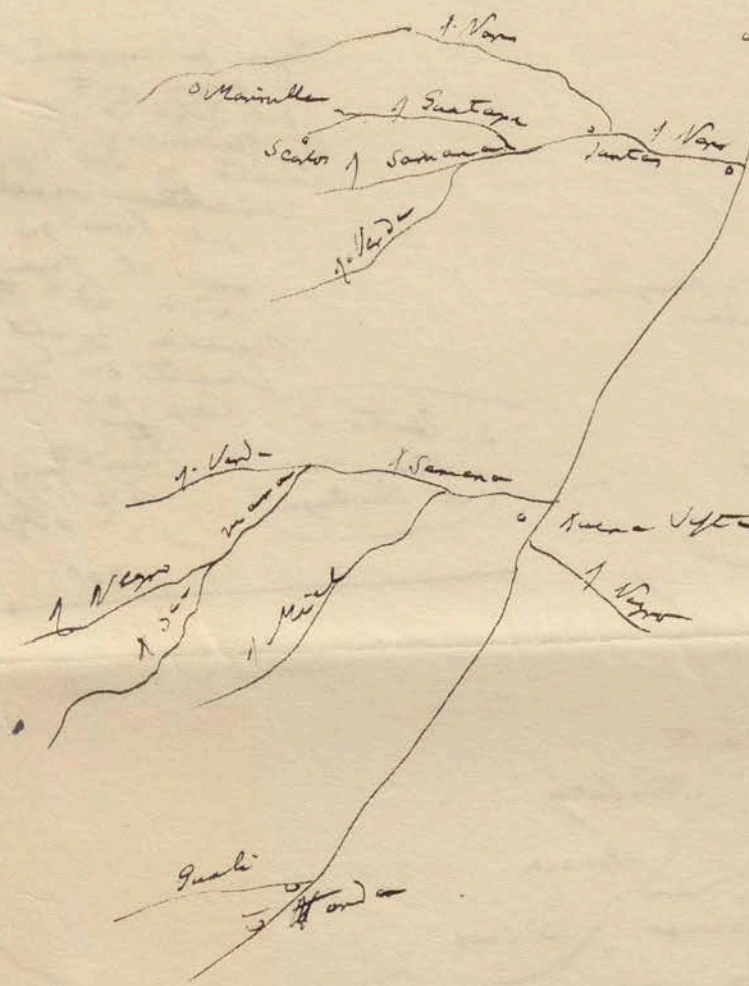 R. Nare
Marinilla
R Guatape
S Carlos
R Samana
Juntas
R Nare
R. Verde
R. Verde
R Samana
Buena Vista
R Negro
R Negro
R Miel
Guali
Honda